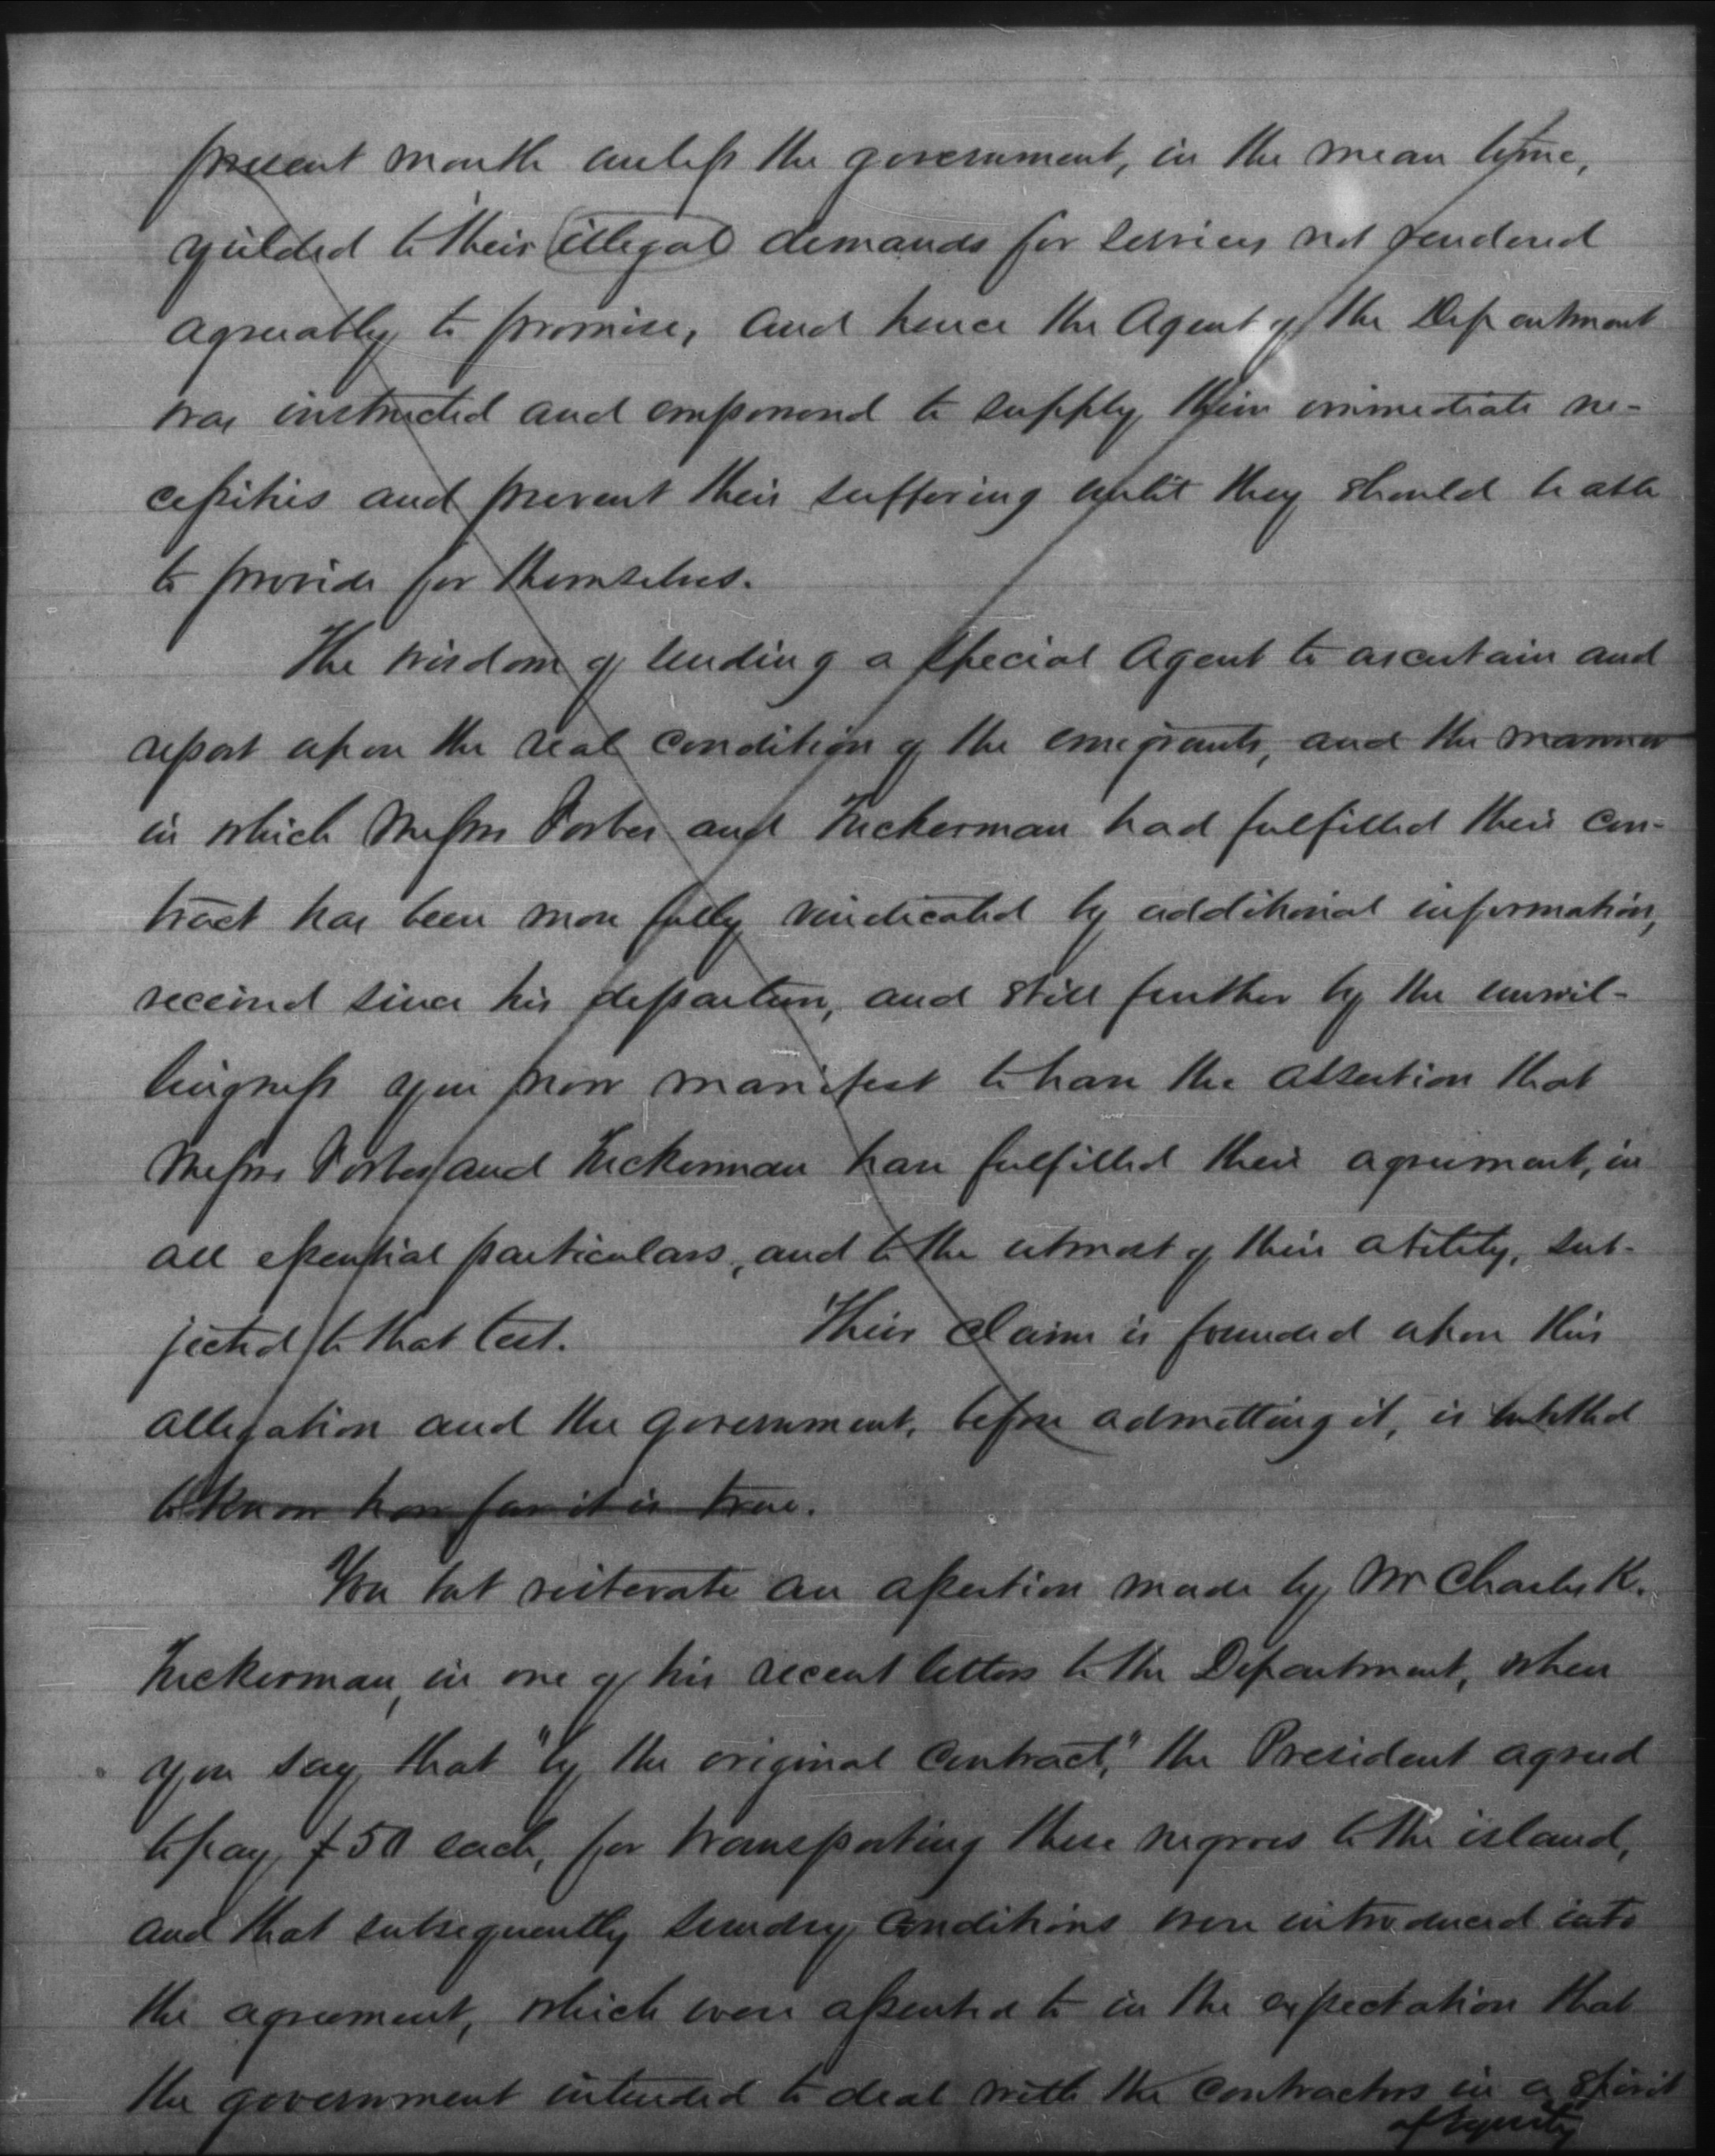 present month unless the government, in the mean time,
yielded to their illegal demands for services not rendered
agreeably to promise, and hence the Agent of the Department
was instructed and empowered to supply their immediate ne-
cessities and prevent their suffering until they should be able
to provide for themselves.
The wisdom of sending a special Agent to ascertain and
report upon the real condition of the emigrants, and the manner
in which Messrs Forbes and Tuckerman had fulfilled their con-
tract has been more fully vindicated by additional information,
received since his departure, and still further by the unwil-
lingness you now manifest to have the assertion that
Messrs Forbes and Tuckerman have fulfilled their agreement, in
all essential particulars, and to the utmost of their ability, sub-
jected to that test. Their claim is founded upon this
allegation and the government, before admitting it, is entitled
to know how far it is true.
You but reiterate an assertion made by Mr Charles K.
Tuckerman, in one of his recent letters to the Department, when
you say that "by the original contract," the President agreed
to pay $50 each, for transporting these negroes to the island,
and that subsequently sundry conditions were introduced into
the agreement, which were assented to in the expectation that
the government intended to deal with the contractors in a spirit
of equity